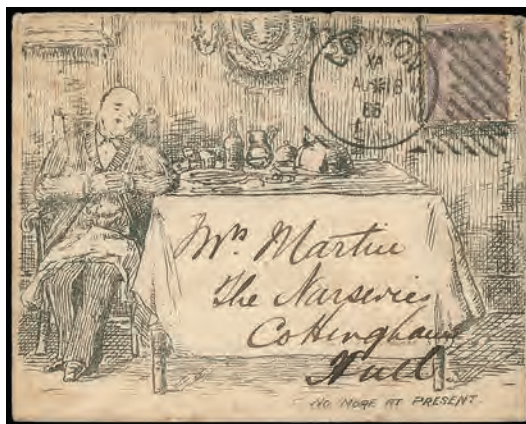 LONDON
86
Mrs. Martin
The Nurseries
Cottingham
Hull
NO MORE AT PRESENT.